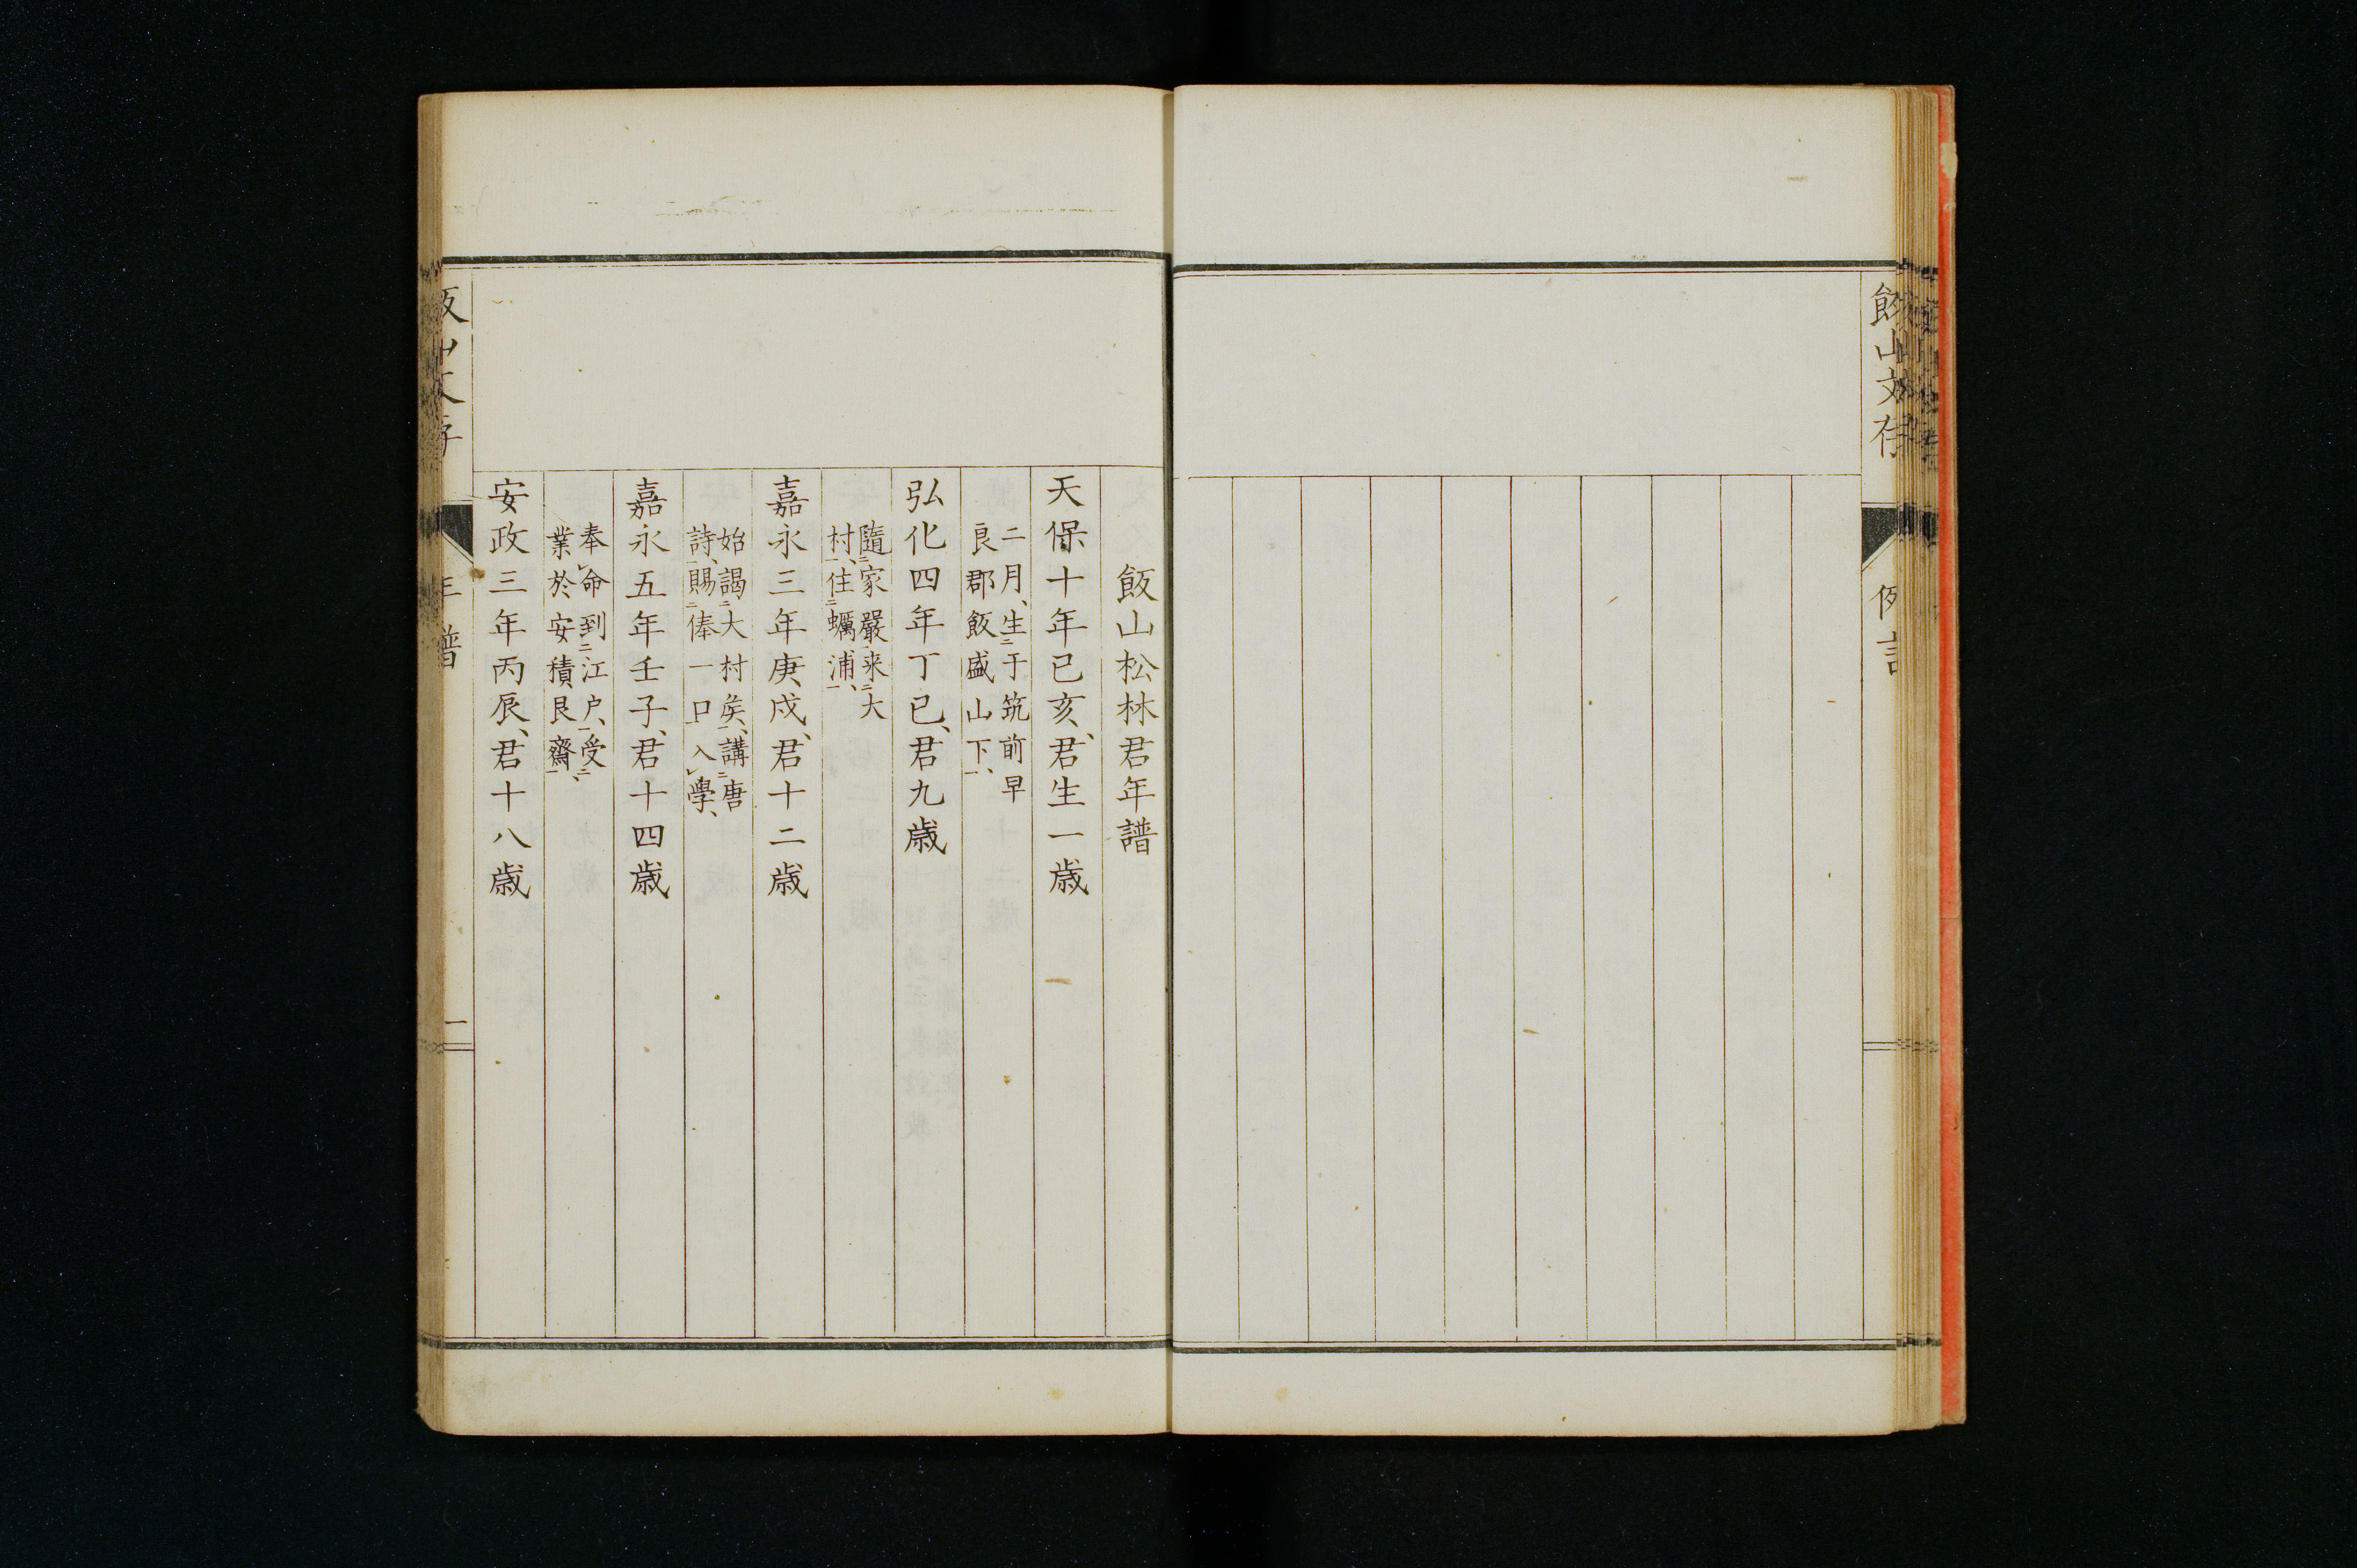 飯山文存
例言
飯山松林君年譜
天保十年己亥、君生一歳
二月、生二于筑前早
良郡飯盛山下一、
弘化四年丁巳、君九歳
隨二家嚴一来二大
村一、住二蠣浦一、
嘉永三年庚戌、君十二歳
始謁二大村矦一、講二唐
詩一、賜二俸一口一入レ學、
嘉永五年壬子、君十四歳
奉レ命到二江戸一、受二
業於安積艮齋一、
安政三年丙辰、君十八歳
飯山文存
年譜
一